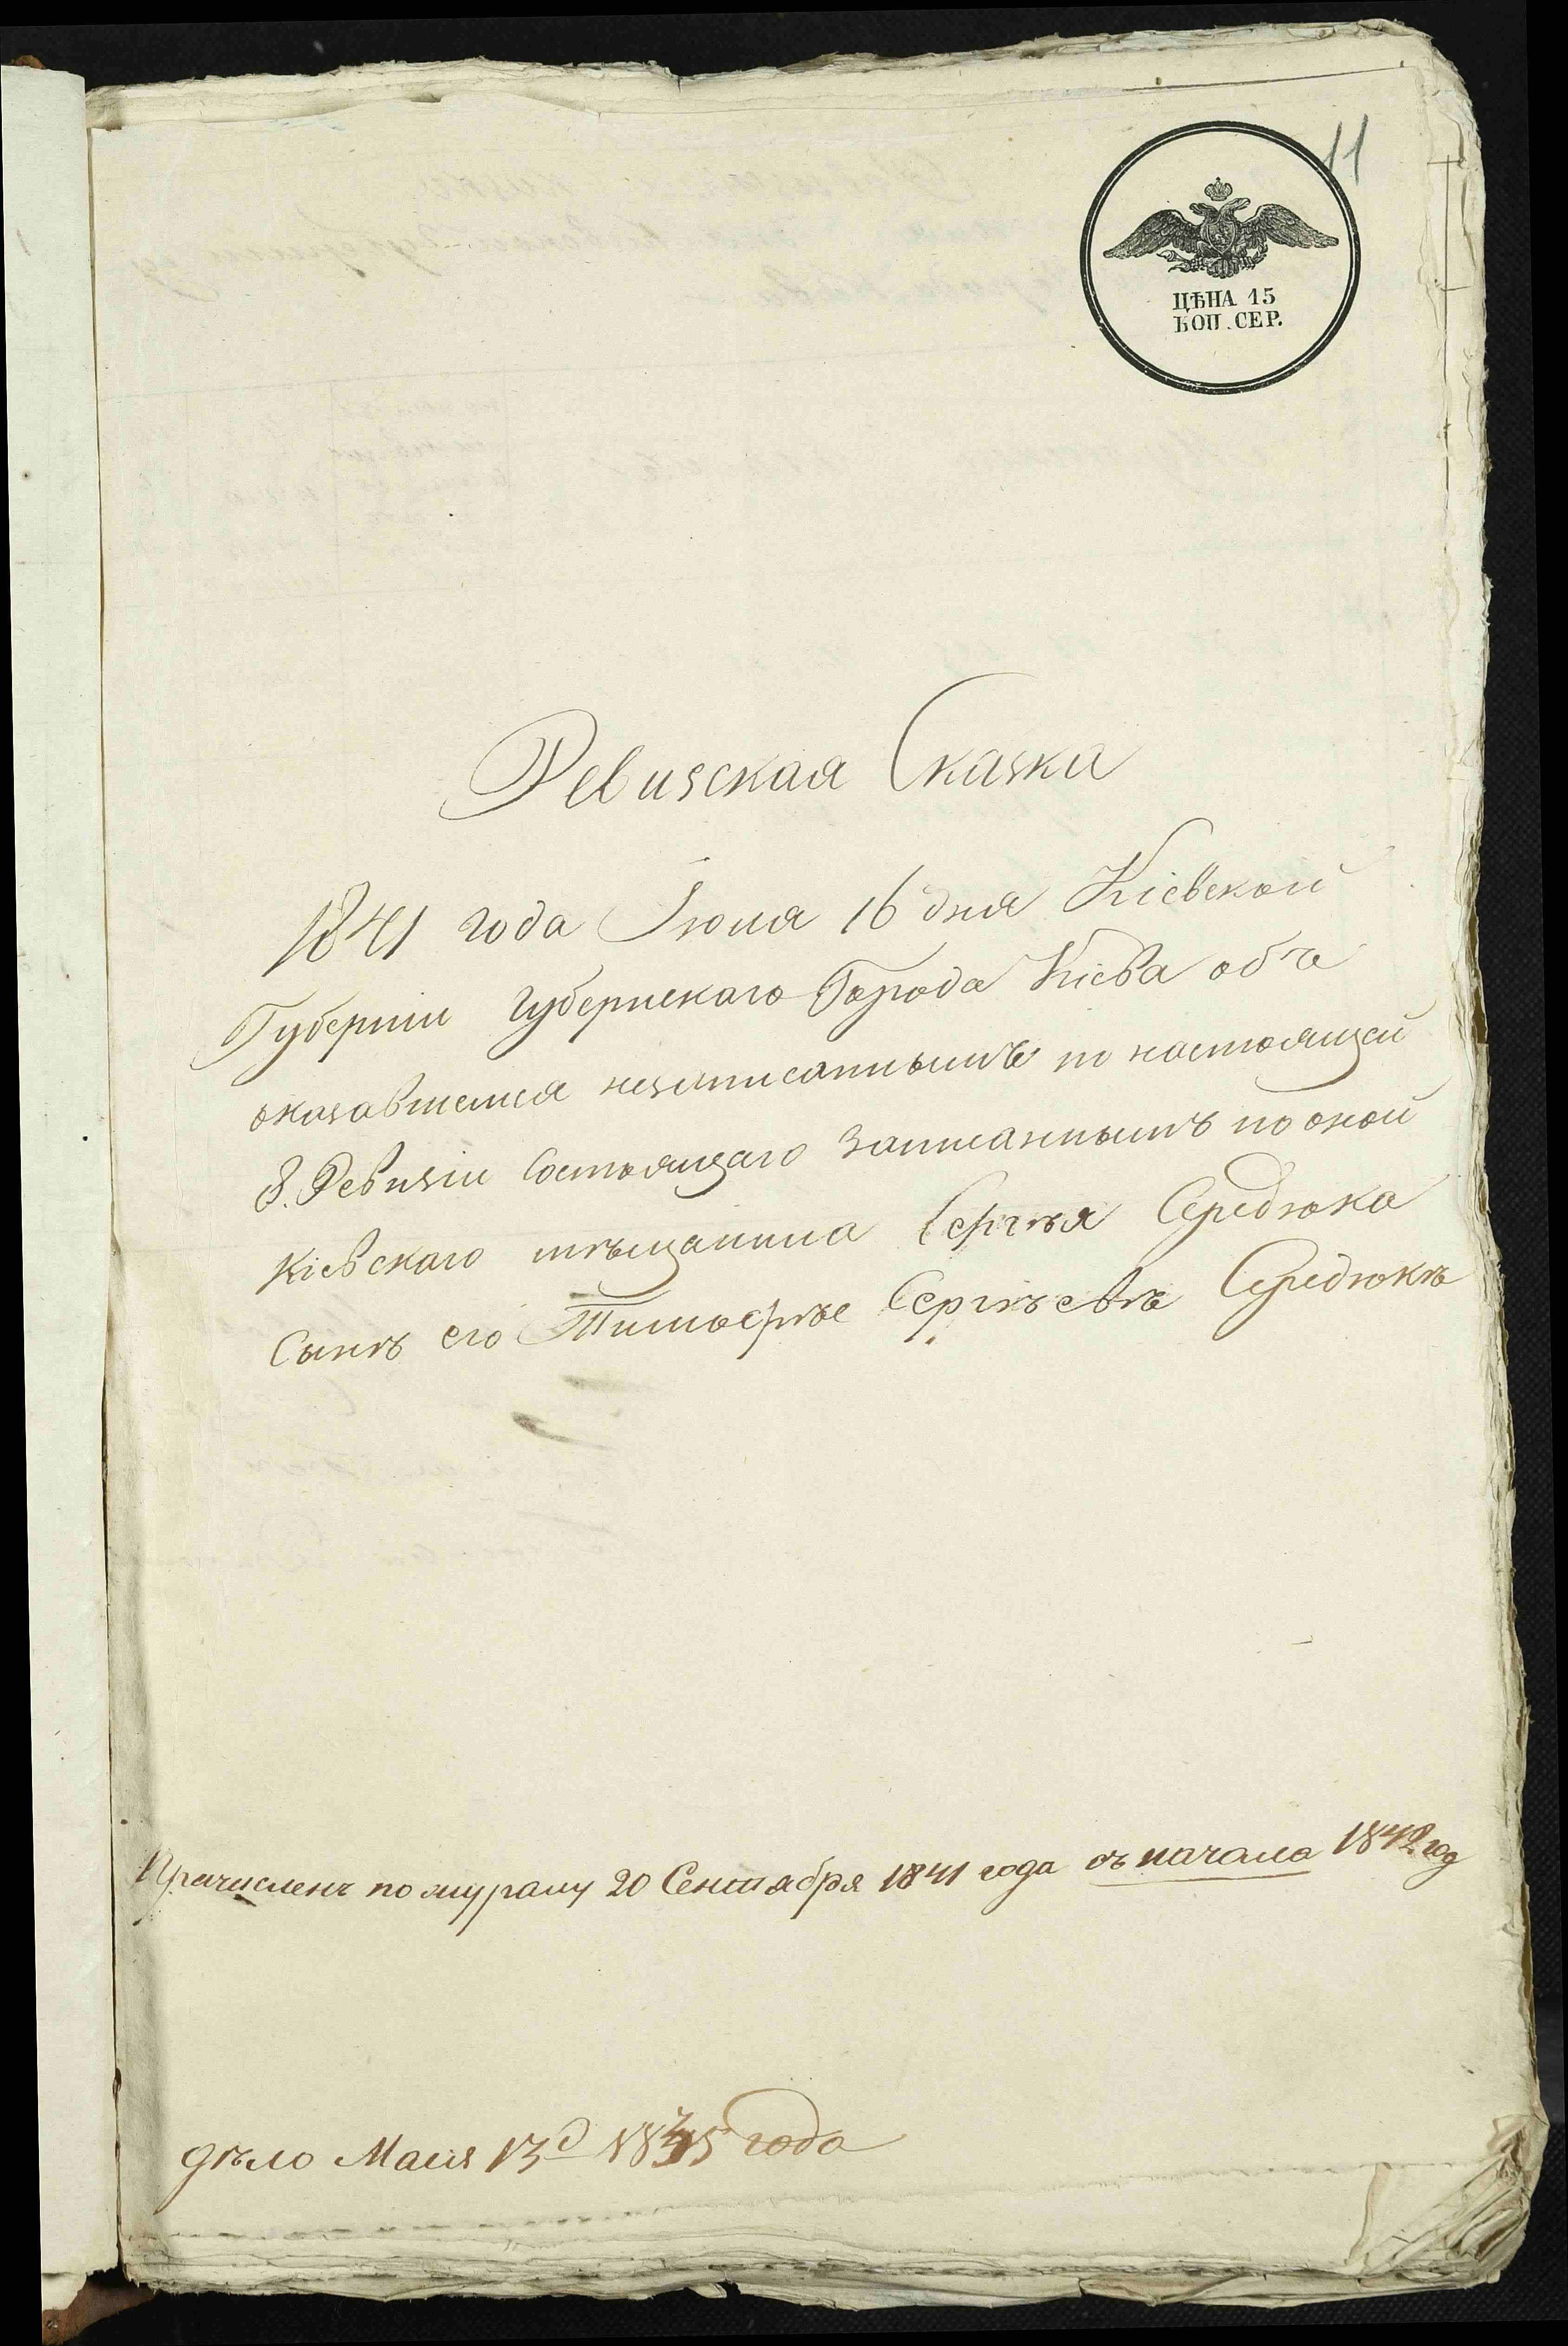 11
ЦѢНА 15
КОП. СЕР.
Ревизская Сказка
1841 года Іюня 16 дня Кіевской
Губерніи Губернскаго Города Кіева объ
оказавшемся незаписаннымъ по настоящей
8. Ревизіи Состоящаго Записаннымъ по оной
Кіевскаго мѣщанина Сергѣя Середюка
Сынѣ его Тимофѣе Сергѣевѣ Середюкѣ
Причисленъ по журналу 20 Сентября 1841 года съ начала 1842 год
дѣло Маія 13 года